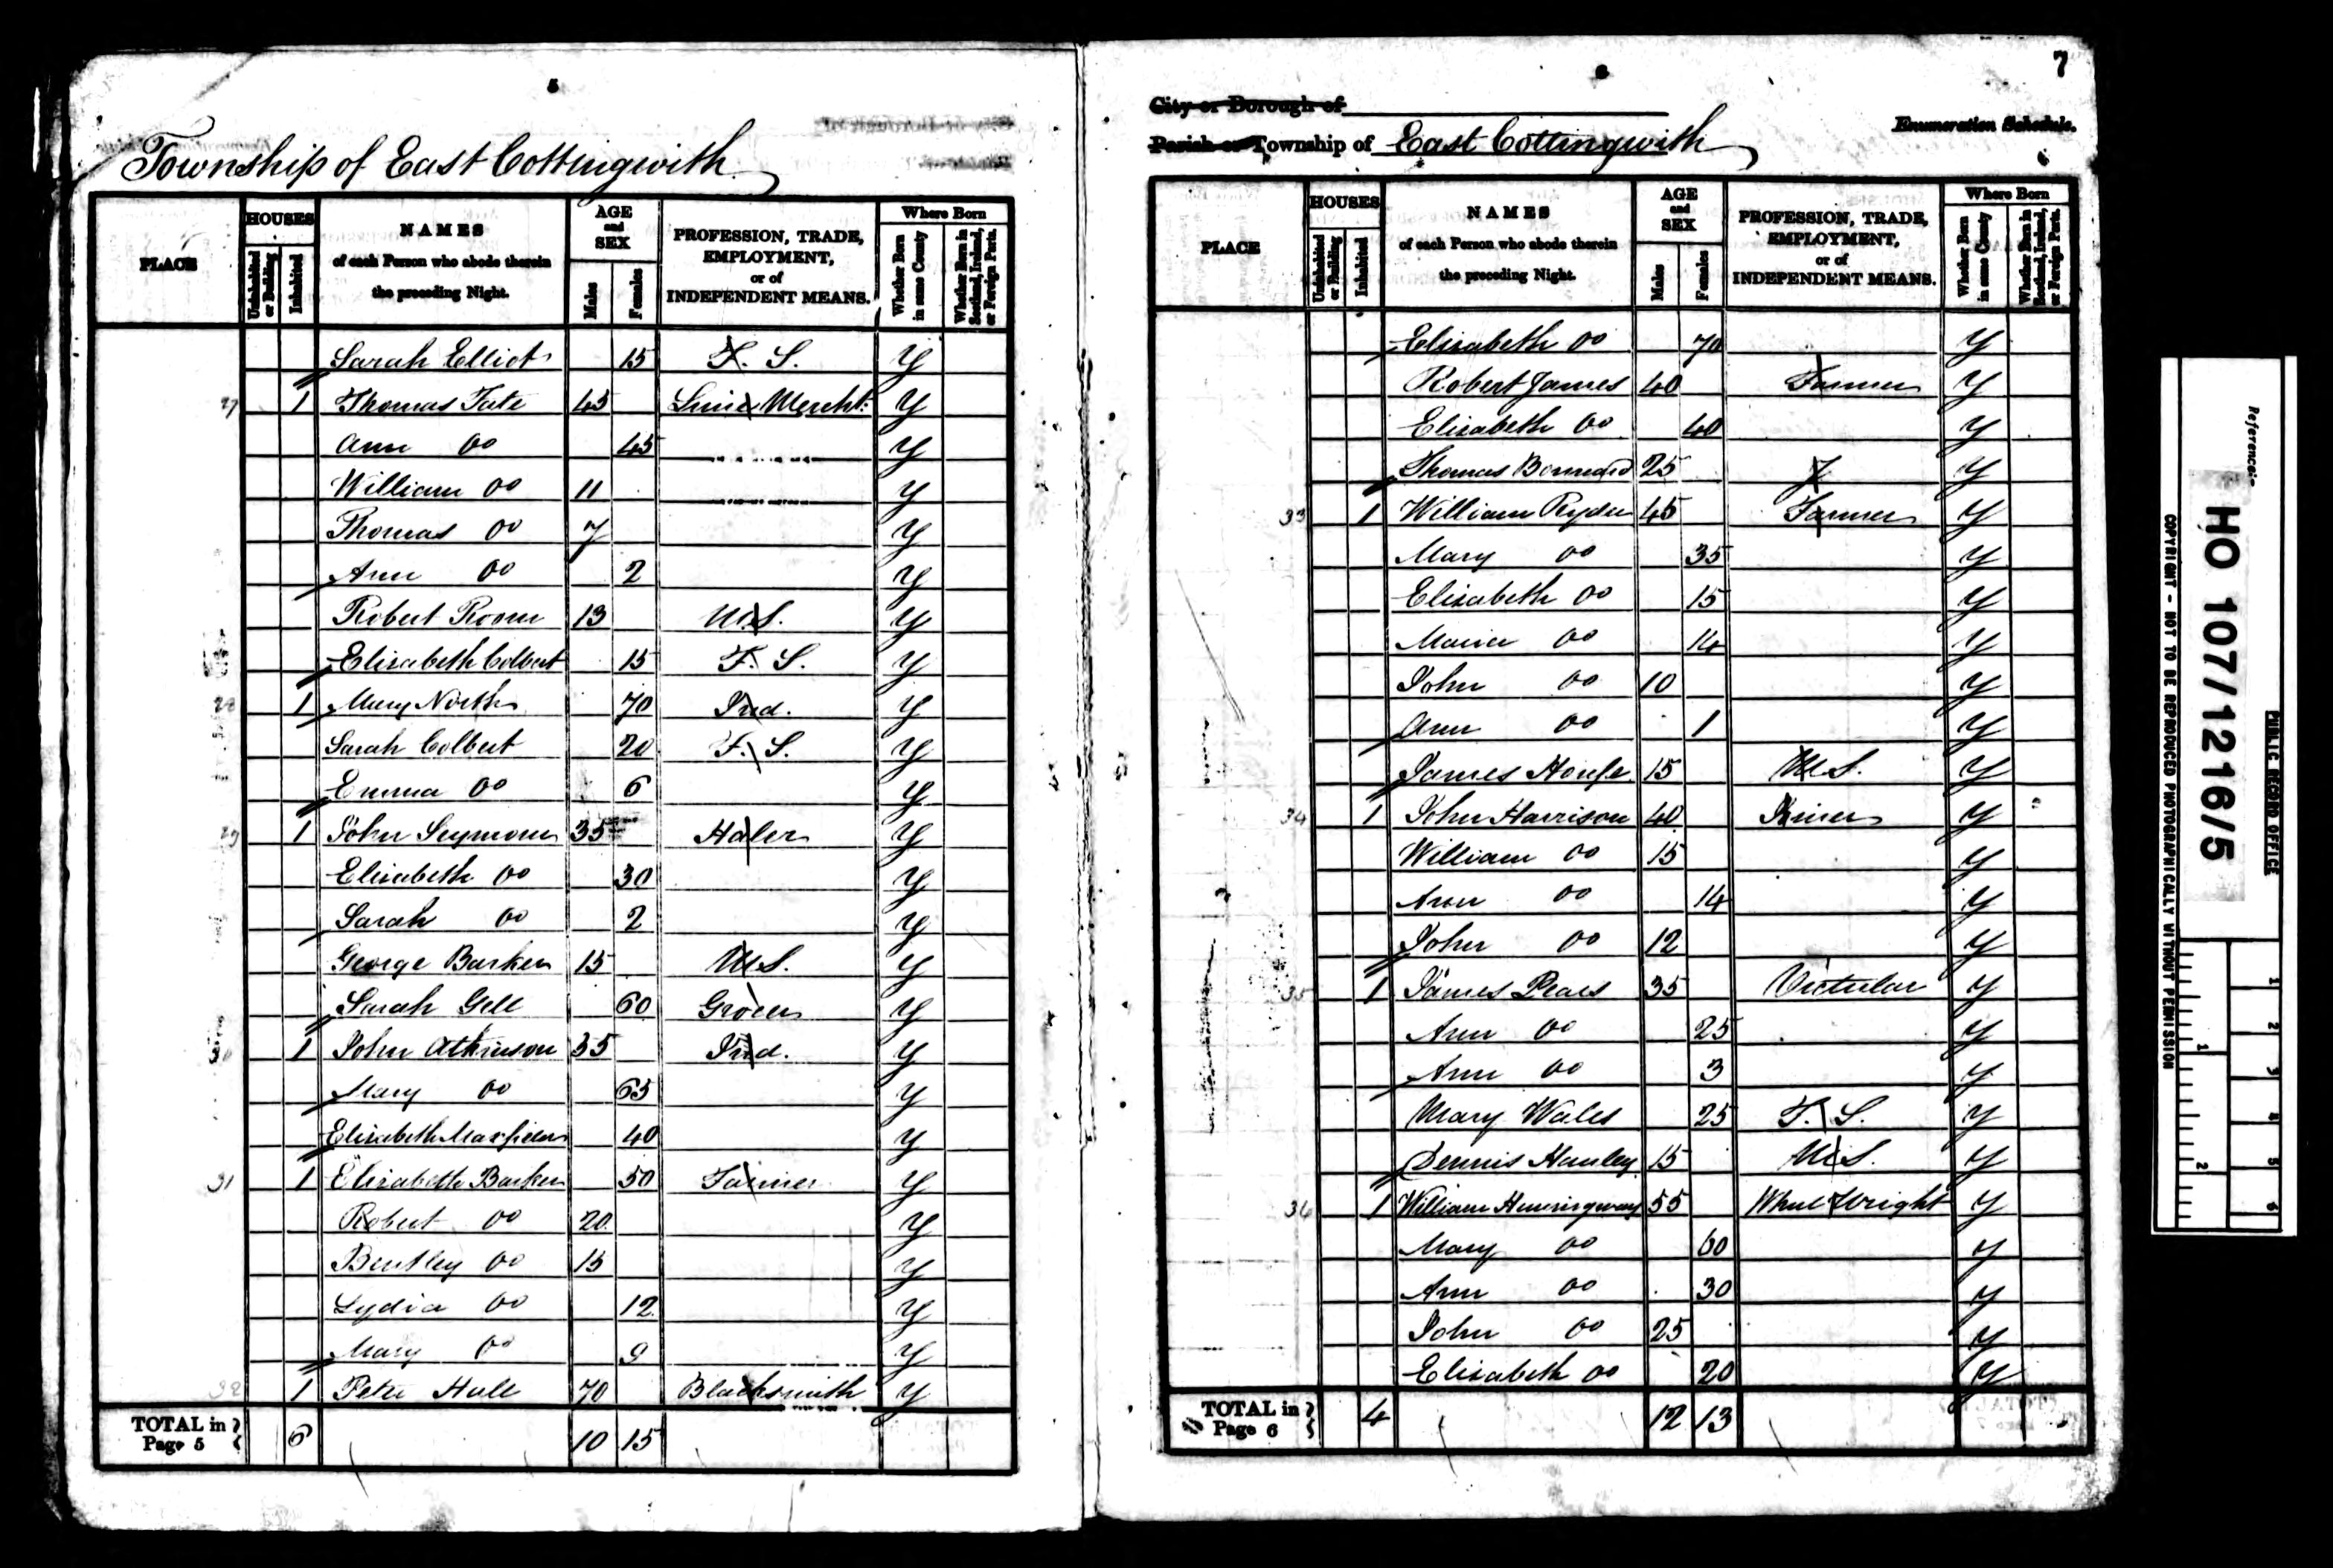 5
Township of East Cottingwith
PLACE HOUSES NAMES AGE and SEX PROFESSION, TRADE, EMPLOYMENT, or of INDEPENDENT MEANS. Where Born
Uninhabited or Building Inhabited of each Person who abode therein the preceding Night. Males Females Whether Born in same County Whether Born in Scotland, Ireland, or Foreign Parts.
Sarah Elliot 15 F. S. Y
27 1 Thomas Tate 45 Mercht: Y
Ann Do 45 Y
William Do 11 Y
Thomas Do 7 Y
Ann Do 2 Y
Robert Room 13 M.S. Y
Elizabeth Colbert 15 F. S. Y
28 1 Mary North 70 Ind. Y
Sarah Colbert 20 F. S. Y
Emma Do 6 Y
29 1 John Seymour 35 Haler Y
Elizabeth Do 30 Y
Sarah Do 2 Y
George Barker 15 M S. Y
Sarah Gell 60 Grocer Y
30 1 John Atkinson 35 Ind. Y
Mary Do 65 Y
Elizabeth 40 Y
31 1 Elizabeth Barker 50 Farmer Y
Robert Do 20 Y
Bentley Do 15 Y
Lydia Do 12 Y
Mary Do 9 Y
32 1 Peter Hall 70 Blacksmith Y
TOTAL in Page 5 6 10 15
6
7
City or Borough of
Parish or Township of East Cottingwith
Enumeration Schedule.
PLACE HOUSES NAMES AGE and SEX PROFESSION, TRADE, EMPLOYMENT, or of INDEPENDENT MEANS. Where Born
Uninhabited or Building Inhabited of each Person who abode therein the preceding Night. Males Females Whether Born in same County Whether Born in Scotland, Ireland, or Foreign Parts.
Elizabeth Do 70 Y
Robert James 40 Farmer Y
Elizabeth Do 40 Y
Thomas 25 Y
33 1 William Ryder 45 Farmer Y
Mary Do 35 Y
Elizabeth Do 15 Y
Maria Do 14 Y
John Do 10 Y
Ann Do 1 Y
James 15 M S. Y
34 1 John Harrison 40 Y
William Do 15 Y
Ann Do 14 Y
John Do 12 Y
35 1 James Pears 35 Victular Y
Ann Do 25 Y
Ann Do 3 Y
Mary Wales 25 F. S. Y
Dennis Hanley 15 M S. Y
36 1 William Hemingway 55 Wheel Wright Y
Mary Do 60 Y
Ann Do 30 Y
John Do 25 Y
Elizabeth Do 20 Y
TOTAL in Page 6 4 12 13
Reference:-
HO 107/1216/5
PUBLIC RECORD OFFICE
COPYRIGHT - NOT TO BE REPRODUCED PHOTOGRAPHICALLY WITHOUT PERMISSION
1 2 3 4 5 6
1 2